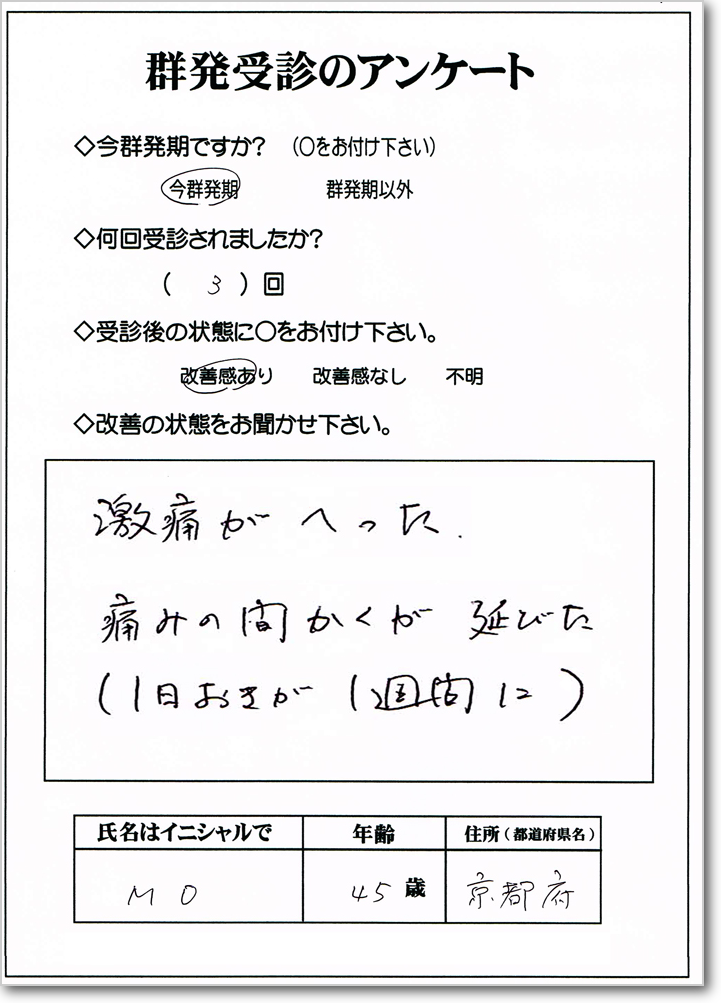 群発受診のアンケート
◇今群発期ですか? (〇をお付け下さい)
今群発期 群発期以外
◇何回受診されましたか?
( 3 ) 回
◇受診後の状態に〇をお付け下さい。
改善感あり 改善感なし 不明
◇改善の状態をお聞かせ下さい。
激痛がへった.
痛みの間かくが 延びた
(1日おきが 1週間に)
氏名はイニシャルで 年齢 住所(都道府県名)
M O 45 歳 京都府